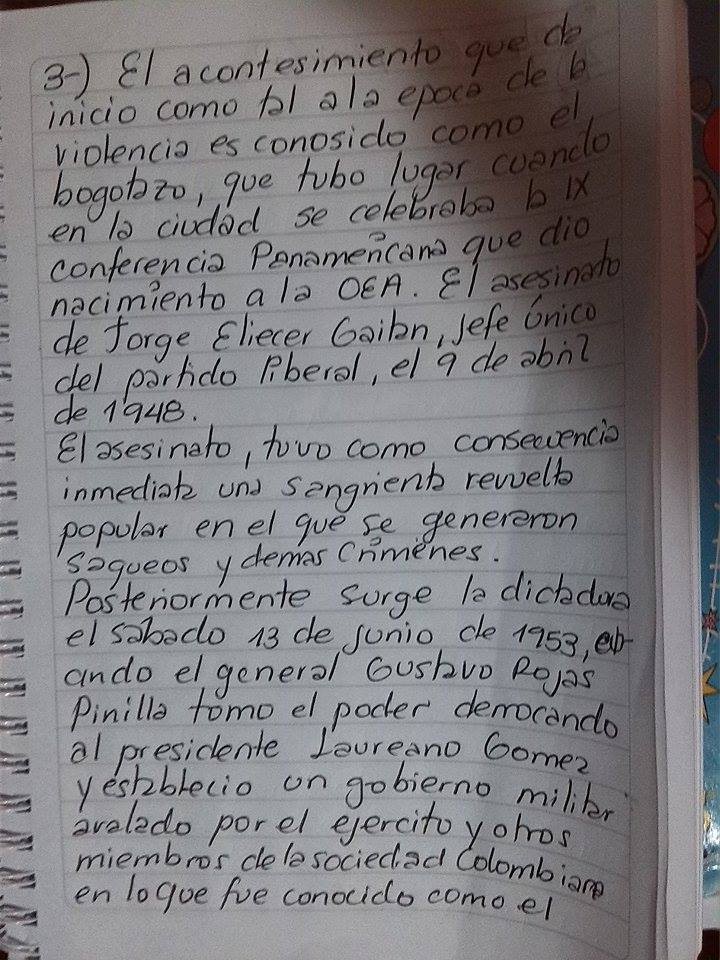 3-) El acontesimiento que da
inicio como tal a la epoca de la
violencia es conosido como el
bogotazo, que tubo lugar cuando
en la ciudad se celebraba la IX
conferencia Panamericana que dio
nacimiento a la OEA. El asesinato
de Jorge Eliecer Gaitan, Jefe Único
del partido liberal, el 9 de abril
de 1948.
El asesinato, tuvo como consecuencia
inmediata una sangrienta revuelta
popular en el que se generaron
saqueos y demas Crimenes.
Posteriormente surge la dictadura
el sabado 13 de junio de 1953, cu-
ando el general Gustavo Rojas
Pinilla tomo el poder derrocando
al presidente Laureano Gomez
y establecio un gobierno militar
avalado por el ejercito y otros
miembros de la sociedad Colombiana
en lo que fue conocido como el